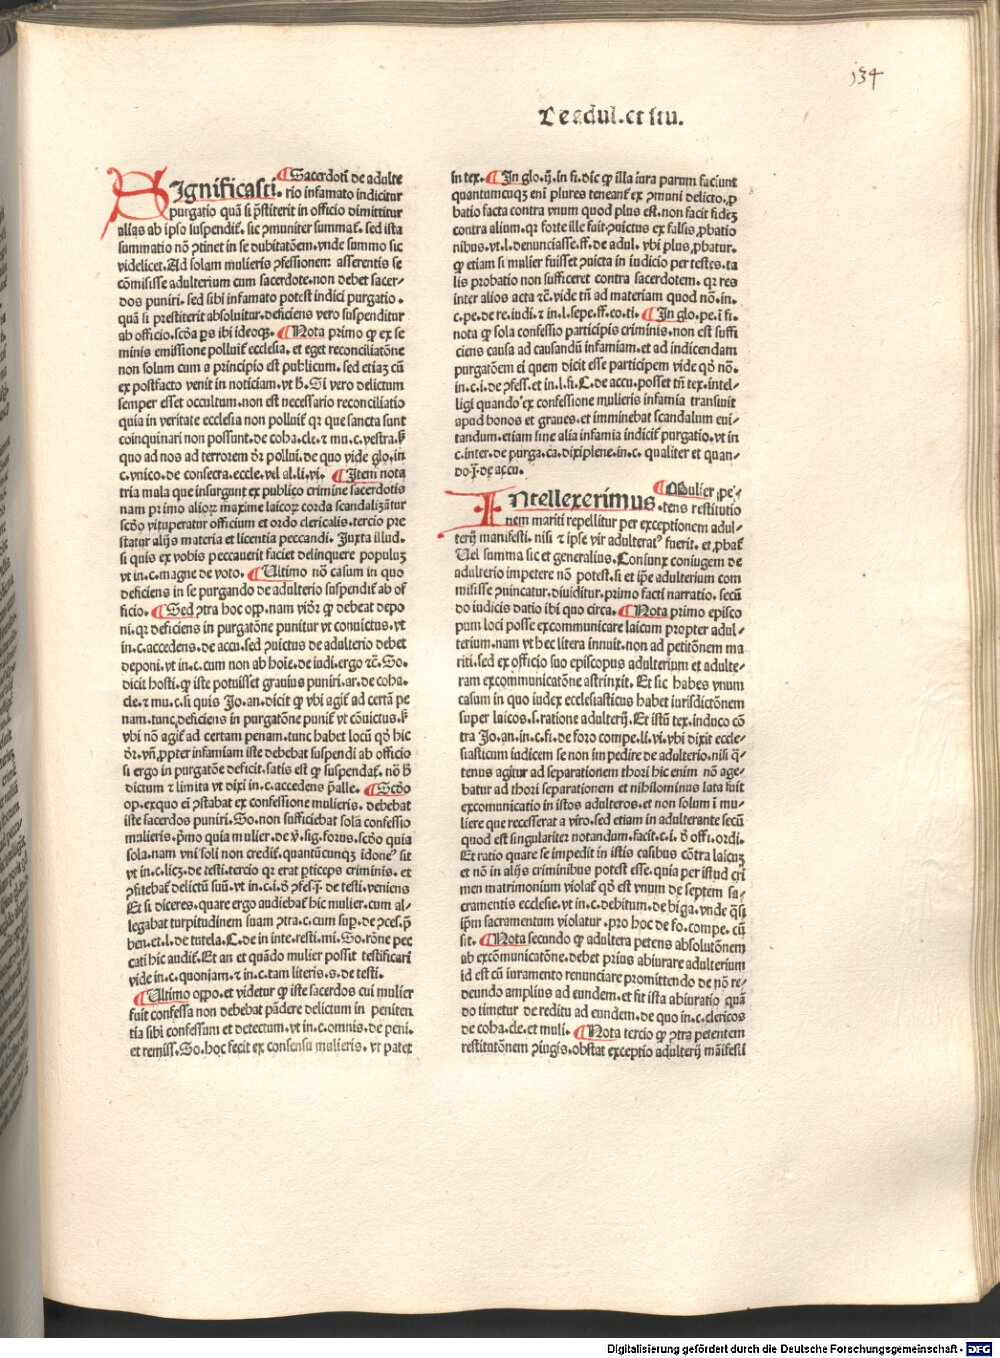 134
De adul. et stu.
Significasti. ¶ Sacerdoti de adulte
rio infamato indicitur
purgatio quã si p̃stiterit in officio dimittitur
alias ab ipso suspendit᷑. sic ꝯmuniter summat᷑. sed ista
summatio nõ ꝯtinet in se dubitatõem. vnde summo sic
videlicet. Ad solam mulieris ꝓfessionem asserentis se
cõmisisse adulterium cum sacerdote. non debet sacer-
dos puniri. sed sibi infamato potest indici purgatio.
quã si prestiterit absoluitur. deficiens vero suspenditur
ab officio. scõa ps ibi ideoqꝫ. ¶ Nota primo ꝙ ex se
minis emissione polluit᷑ ecclesia. et eget reconciliatõne
non solum cum a principio est publicum. sed etiaꝫ cũ
ex postfacto venit in noticiam. vt h̃. Si vero delictum
semper esset occultum. non est necessario reconciliatio
quia in veritate ecclesia non polluit᷑ qꝛ que sancta sunt
coinquinari non possunt. de coha. cle. ⁊ mu. c. vestra. ß
quo ad nos ad terrorem dꝛ̃ pollui. de quo vide glo. in
c. vnico. de consecra. eccle. vel al. li. vi. ¶ Item nota
tria mala que insurgunt ex publico crimine sacerdotis
nam primo alioꝝ maxime laicoꝝ corda scandalizãtur
scðo vituperatur officium et ordo clericalis. tercio pre
statur alijs materia et licentia peccandi. Juxta illud.
si quis ex vobis peccauerit faciet delinquere populuꝫ
vt in. c. magne de voto. ¶ Ultimo nõ casum in quo
deficiens in se purgando de adulterio suspendit᷑ ab of
ficio. ¶ Sed ꝯtra hoc opp. nam vidr̃ ꝙ debeat depo
ni. qꝛ deficiens in purgatõne punitur vt conuictus. vt
in. c. accedens. de accu. sed ꝯuictus de adulterio debet
deponi. vt in. c. cum non ab hoie. de iudi. ergo ⁊c̃. So.
dicit hosti. ꝙ iste potuisset grauius puniri. ar. de coha.
cle. ⁊ mu. c. si quis Jo. an. dicit ꝙ vbi agit᷑ ad certã pe
nam. tunc deficiens in purgatõne punit᷑ vt cõuictus. ß
vbi nõ agit᷑ ad certam penam. tunc habet locũ qð hic
dꝛ̃. vñ ꝓpter infamiam iste debebat suspendi ab officio
si ergo in purgatõe deficit. satis est ꝙ suspendat᷑. nõ h̃
dictum ⁊ limita vt dixi in. c. accedens p̃alle. ¶ Scðo
op. exquo ei ꝯstabat ex confessione mulieris. debebat
iste sacerdos puniri. So. non sufficiebat sola confessio
mulieris. p̃mo quia mulier. de ṽ. sig. forus. scðo quia
sola. nam vni soli non credit᷑. quantũcunqꝫ idoneꝰ sit
vt in. c. licꝫ. de testi. tercio qꝛ erat ꝑticeps criminis. et
ꝓfitebat᷑ delictũ suũ. vt in. c. i. ð ꝓfes. ⁊. de testi. veniens
Et si diceres. quare ergo audiebat᷑ hic mulier. cum al-
legabat turpitudinem suam ꝯtra. c. cum suꝑ. de ꝯces. p̃
ben. et. l. de tutela. C. de in inte. resti. mi. So. rõne pec
cati hic audit᷑. Et an et quãdo mulier possit testificari
vide in. c. quoniam. ⁊ in. c. tam literis. s. de testi.
¶ Ultimo oppo. et videtur ꝙ iste sacerdos cui mulier
fuit confessa non debebat pãdere delictum in peniten
tia sibi confessum et detectum. vt in. c. omnis. de peni.
et remiss. So. hoc fecit ex consensu mulieris. vt patet
in tex. ¶ In glo. ij. in fi. dic̃ ꝙ illa iura parum faciunt
quantumcuqꝫ eni plures teneant᷑ ex ꝯmuni delicto. ꝓ
batio facta contra vnum quod plus est. non facit fideꝫ
contra alium. qꝛ forte ille fuit ꝯuictus ex falsis ꝓbatio
nibus. vt. l. denunciasse. ff. de adul. vbi plus ꝓbatur.
ꝙ etiam si mulier fuisset ꝯuicta in iudicio per testes. ta
lis probatio non sufficeret contra sacerdotem. qꝛ res
inter alios acta ⁊c̃. vide tñ ad materiam quod nõ. in.
c. pe. de re. indi. ⁊ in. l. sepe. ff. eo. ti. ¶ In glo. pe. i fi.
nota ꝙ sola confessio participis criminis. non est suffi
ciens causa ad causandũ infamiam. et ad indicendam
purgatõem ei quem dicit esse participem vide qð nõ.
in. c. i. de ꝓfess. et in. l. fi. C. de accu. posset tñ tex. intel-
ligi quando ex confessione mulieris infamia transiuit
apud bonos et graues. et imminebat scandalum eui-
tandum. etiam sine alia infamia indicit᷑ purgatio. vt in
c. inter. de purga. ca. dixiplene. in. c. qualiter et quan-
do. ij. de accu.
Intellexerimus. ¶ Mulier pe-
tens restitutio
nem mariti repellitur per exceptionem adul-
terij manifesti. nisi ⁊ ipse vir adulteratꝰ fuerit. et ꝓbat᷑
Uel summa sic et generalius. Coniunx coniugem de
adulterio impetere nõ potest. si et ip̃e adulterium com
misisse ꝯuincatur. diuiditur. primo facti narratio. secũ
do iudicis datio ibi quo circa. ¶ Nota primo episco
pum loci posse excommunicare laicum propter adul-
terium. nam vt hec litera innuit. non ad petitõnem ma
riti. sed ex officio suo episcopus adulterium et adulte-
ram excommunicatõne astrinxit. Et sic habes vnum
casum in quo iudex ecclesiasticus habet iurisdictõnem
super laicos. s. ratione adulterij. Et istũ tex. induco cõ
tra Jo. an. in. c. fi. de foro compe. li. vi. vbi dixit eccle-
siasticum iudicem se non impedire de adulterio. nisi q̃-
tenus agitur ad separationem thori hic enim nõ age-
batur ad thori separationem et nihilominus lata fuit
excomunicatio in istos adulteros. et non solum ĩ mu-
liere que recesserat a viro. sed etiam in adulterante secũ
quod est singulariter notandum. facit. c. i. ð offi. ordi.
Et ratio quare se impedit in istis casibus cõtra laicuꝫ
et nõ in alijs criminibus potest esse. quia per istud cri
men matrimonium violat᷑ qð est vnum de septem sa-
cramentis ecclesie. vt in. c. debitum. de biga. vnde q̃si
ip̃m sacramentum violatur. pro hoc de fo. compe. cũ
sit. ¶ Nota secundo ꝙ adultera petens absolutõnem
ab excõmunicatõne. debet prius abiurare adulterium
id est cũ iuramento renunciare promittendo de nõ re-
deundo amplius ad eundem. et fit ista abiuratio quã
do timetur de reditu ad eundem. de quo in. c. clericos
de coha. cle. et muli. ¶ Nota tercio ꝙ ꝯtra petentem
restitutõnem ꝯiugis. obstat exceptio adulterij mãifesti
Digitalisierung gefördert durch die Deutsche Forschungsgemeinschaft - DFG